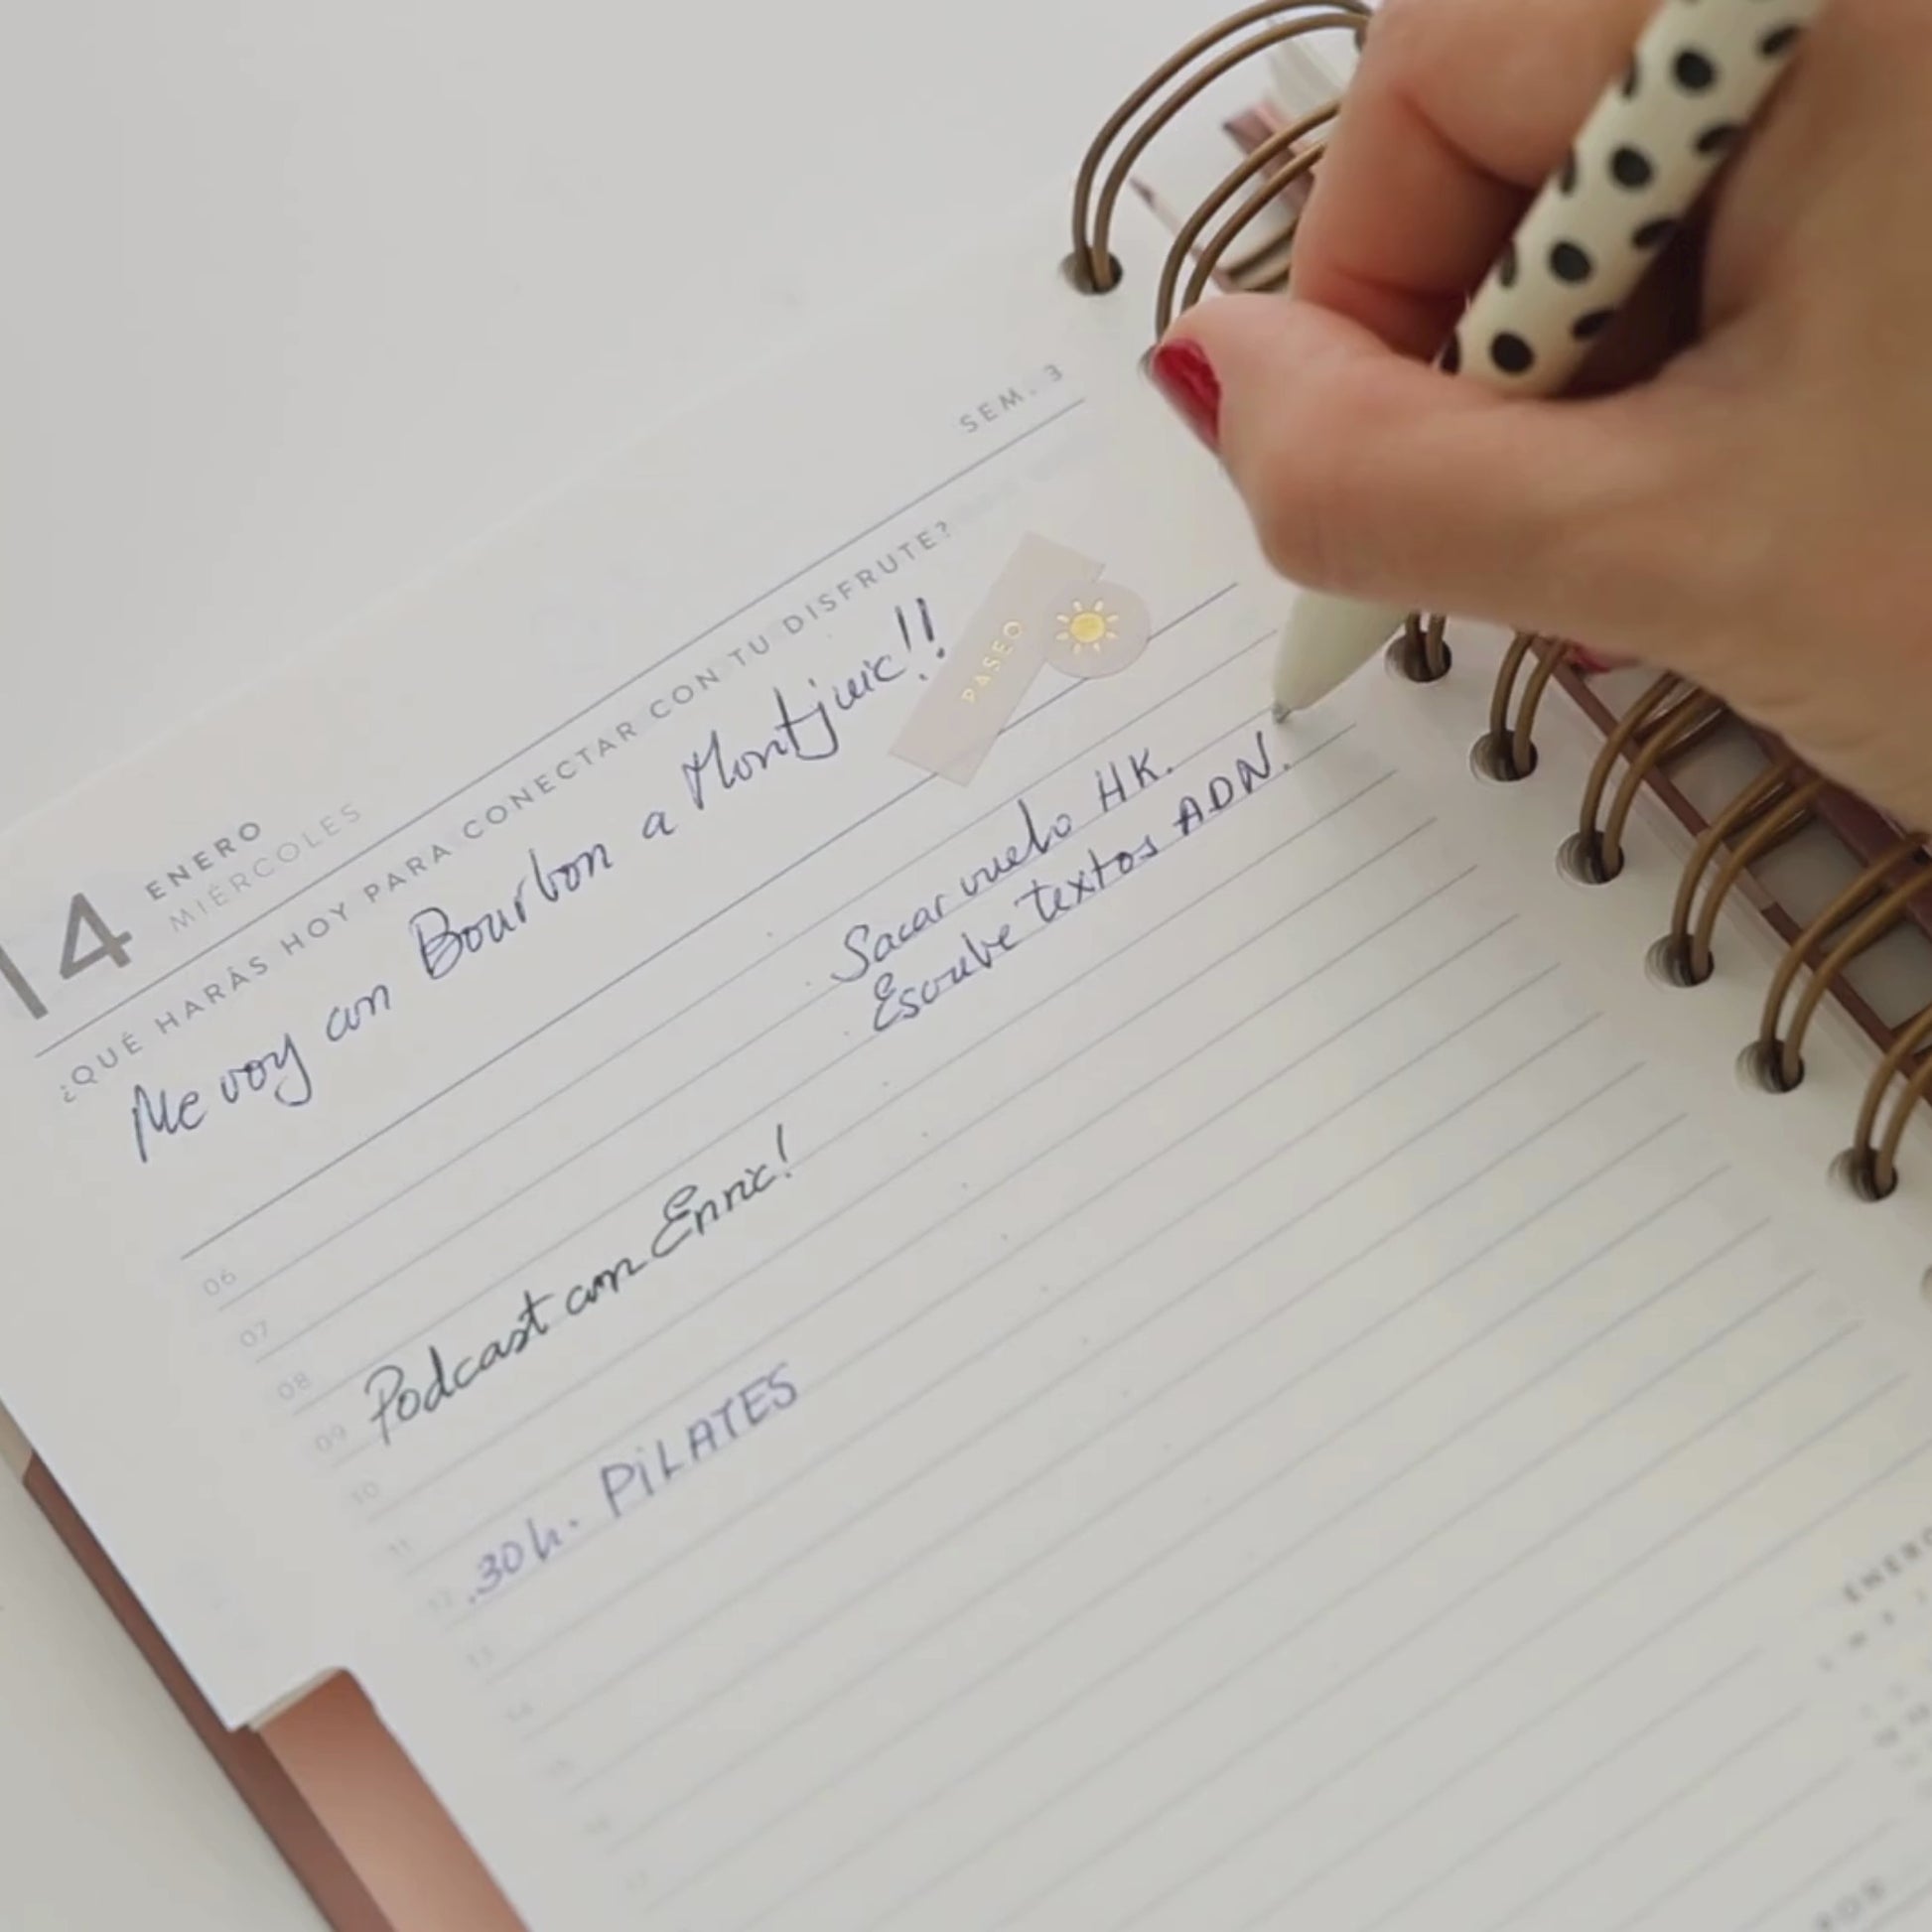 SEM. 3
14 ENERO
MIÉRCOLES
¿QUÉ HARÁS HOY PARA CONECTAR CON TU DISFRUTE?
Me voy con Bourbon a Montjuic!!
PASEO
06
Sacar vuelo HK.
07
Escribe textos ADN.
08
09 Podcast con Enric!
10
11
12 .30h. PiLATES
13
14
15
16
17
ENERO